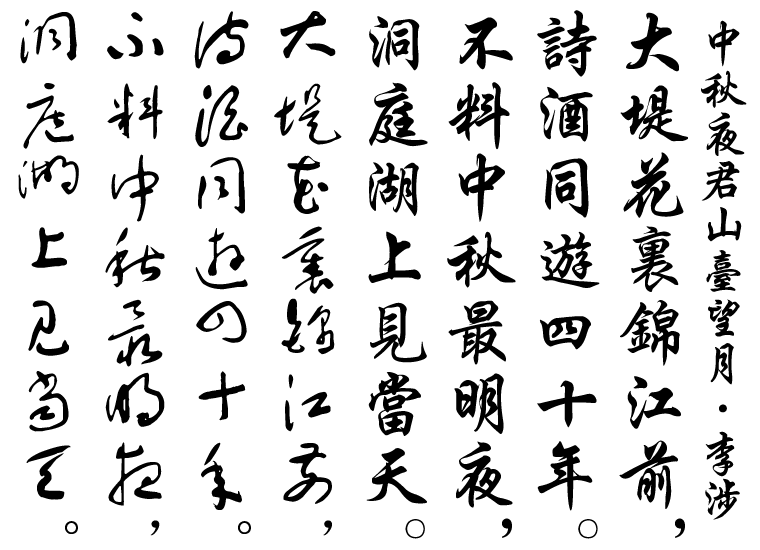 中秋夜君山臺望月·李涉
大堤花裏錦江前，
詩酒同遊四十年。
不料中秋最明夜，
洞庭湖上見當天。
大堤花裏錦江前，
詩酒同遊四十年。
不料中秋最明夜，
洞庭湖上見當天。